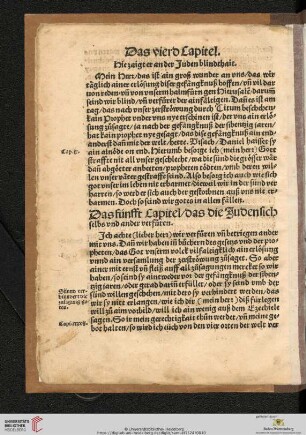 Das vierd Capitel.
Hie zaigt er an der Juden blindthait.
Mein Herr/das ist ain groß wunder an vns/das wir
täglich ainer erlösung diser gefängknuß hoffen/vñ vil dar
von reden/vñ von vnserm haimfaren gen Hierusalē. darum̄
seind wir blind/vñ verfürer der ainfältigen. Dañ es ist am
tag/das nach vnser zerstörung durch Titum beschehen/
kain Prophet vnder vns nye erschinen ist/der vns ain erlö-
sung zusagte/ja nach der gefängknuß der sibentzig jaren/
hat kain prophet nye gesagt/das dise gefängknuß ain end/
anderst dañ mit der welt/hette. Vrsach/Daniel haißet sy
ain ainöde on end. Hierumb besorge ich (mein herr) Gott
straffte nit all vnser geschlecht/wa die sünd die grösser wär
dañ abgötter anbetten/propheten tödten/vmb deren wil-
len vnser väter gestraffte seind. Also besorg ich auch wie sich
got vnser im leben nit erbarme: dieweil wir in der sünd ver-
harren/so werd er sich auch der gestorbnen auß vns nit er-
barmen. Doch so seind wir gottes in allen fällen.
Das fünfft Capitel/das die Juden sich
selbs vnd ander verfüren.
Ich achte (lieber herr) wir verfüren vñ betriegen ander
mit vns. Dañ wir haben in büchern des gesatz vnd der pro-
pheten/das Got vnserm volck vilfältigklich ain erlösung
vnd ain versamlung der zerströwung zusagt. So aber
ainer mit ernst vñ fleiß auff all zusagungen mercke so wir
haben/so seind sy aintweder vor der gefängknuß der siben-
tzig jaren/oder gerad darum̄ erfüllt/oder sy sind vmb der
sünd willen geschehen/mit dero sy verhindert werden/das
wir sy nitt erlangen/wie ich dir (mein herr) diß fürlegen
will zu aim vorbild/will ich ain wenig auß dem Ezechiele
sagen. So ir mein gerechtigkait thun werdet/vñ meine ge-
bot halten/so wird ich euch von den vier orten der welt ver
Cap. ix.
zusagung
UNIVERSITÄTS-
BIBLIOTHEK
HEIDELBERG
© Universitätsbibliothek Heidelberg
gefördert durch
Baden-Württemberg